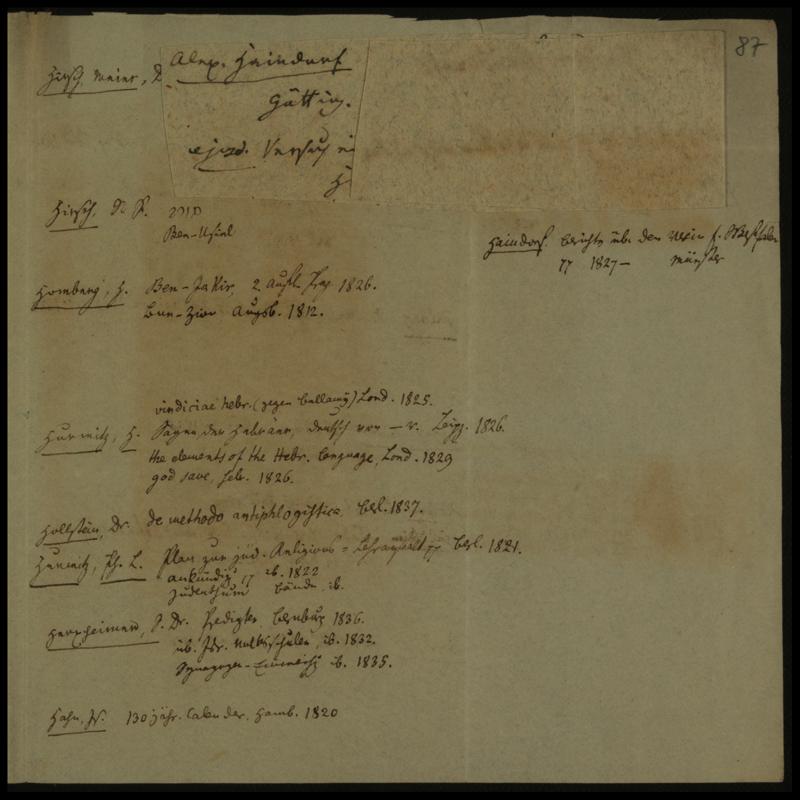 87
Hirsch, Meier, D
Alex. Haindorf
Götting.
ejusd. Versuch ei
H
Hirsch, S. R.
Ben-Usiel
Haindorf. Berichte üb. den Verein f. Westfalen
1827— Münster
Homberg, H. Ben-Jakir, 2. Aufl. Prag 1826.
Ben-Zion Augsb. 1812.
vindiciae hebr. (gegen Bellamy) Lond. 1825.
Hurwitz, H. Sagen der Hebräer, deutsch von — r. Leipz. 1826.
the elements of the Hebr. language, Lond. 1829
god save, 1826.
Hollstein, Dr. de methodo antiphlogistica Berl. 1837.
Hurwitz, Ph. L. Plan zur jüd. Religions = Lehranstalt Berl. 1821.
Ankündig ib. 1822
Judenthum ib.
Herxheimer, S. Dr. Predigten, Bernburg 1836.
üb. Isr. Volksschulen, ib. 1832.
Synagogen-Einweih ib. 1835.
Hahn, 130jähr. Calender, Hamb. 1820